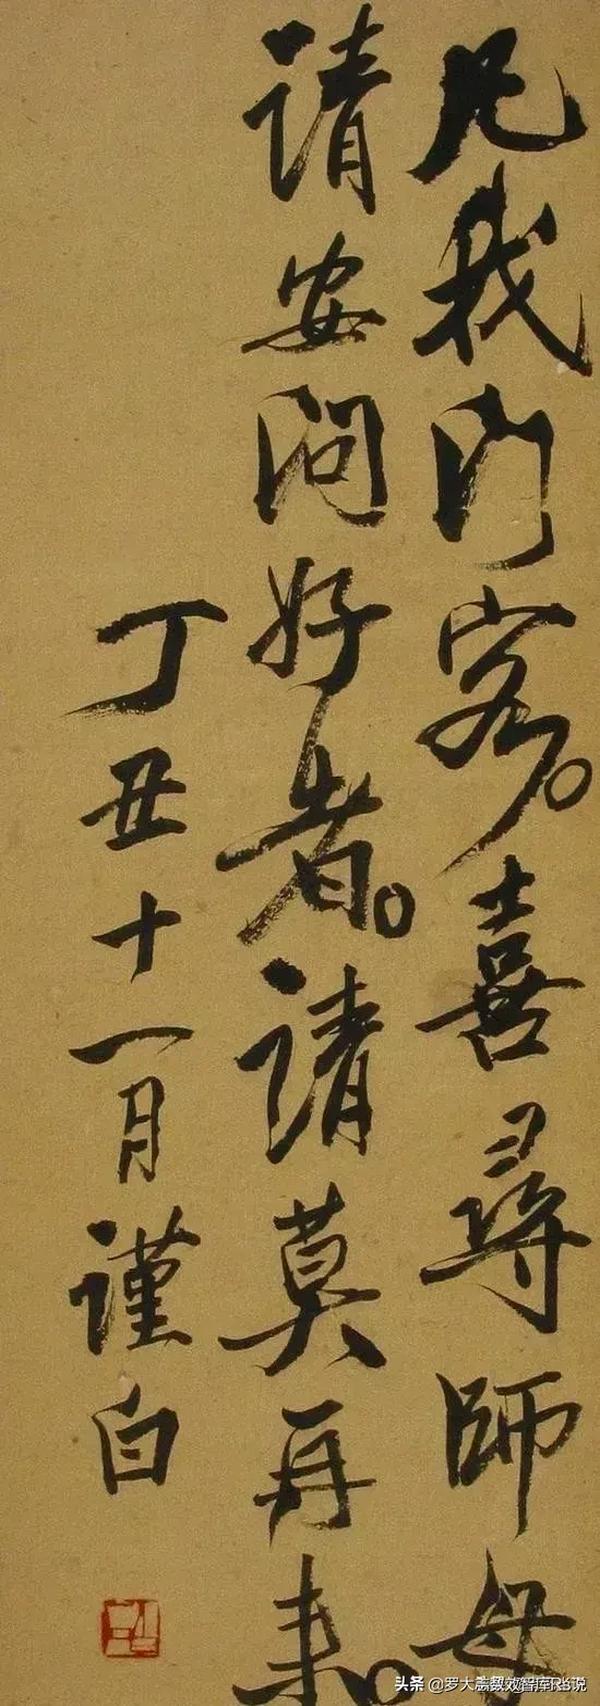 凡我門客。喜尋師母
请安问好者。请莫再来。
丁丑十一月謹白
头条 @罗大